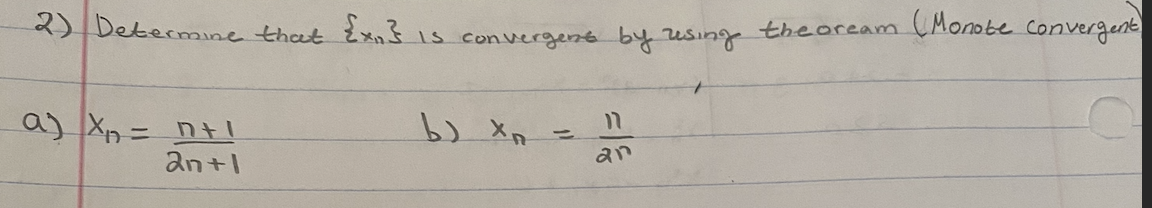 2) Determine that {xn} is convergent by using theoream (Monote convergent)
a) xn = n+1/2n+1 b) xn = n/2n